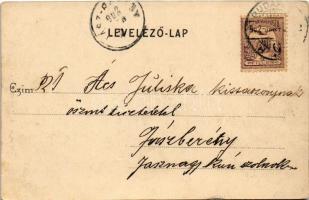 LEVELEZŐ-LAP
Czim: Ács Juliska kisasszonynak
őszinte tisztelettel
Jászberény
Jásznagykun szolnok